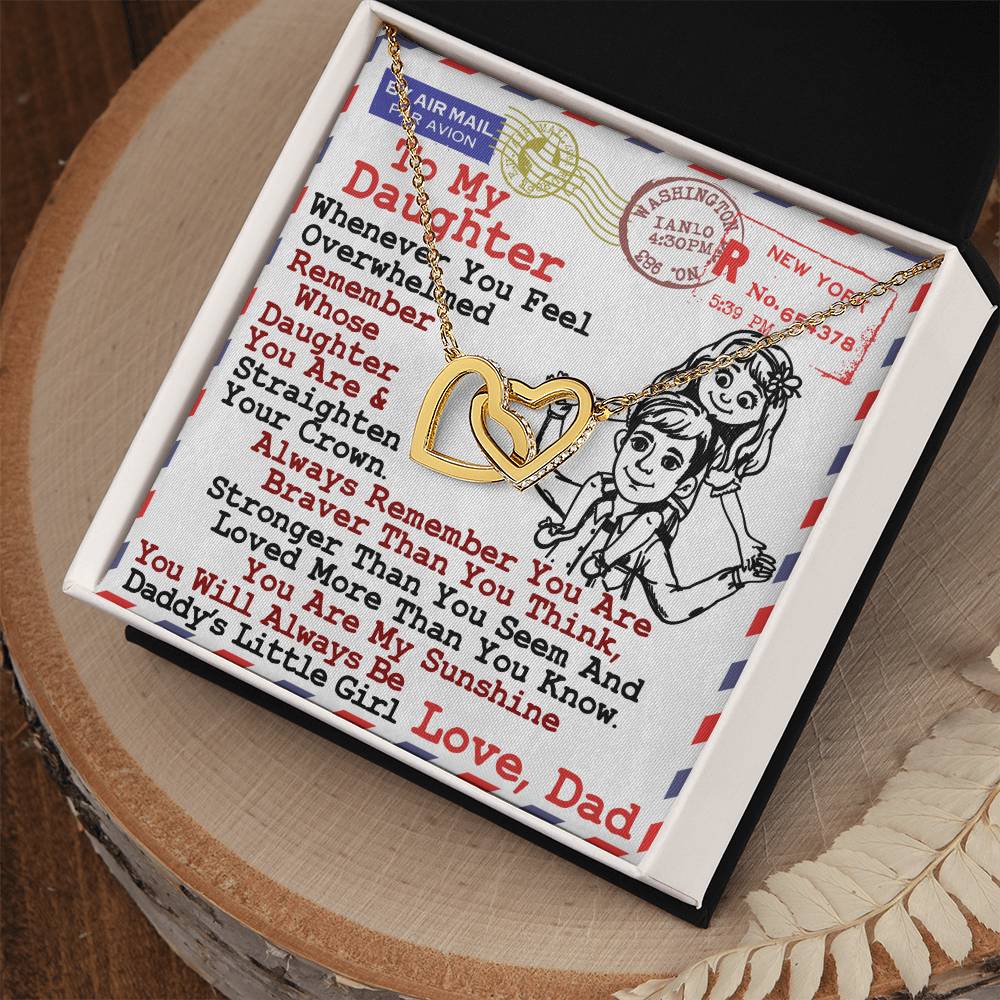 BY AIR MAIL
PAR AVION
To My
Daughter
WASHINGTON
IAN10
4:30PM
NO. 983
R
NEW YORK
No. 654378
5:39 PM
Whenever You Feel
Overwhelmed
Remember
Whose
Daughter
You Are &
Straighten
Your Crown.
Always Remember You Are
Braver Than You Think,
Stronger Than You Seem And
Loved More Than You Know.
You Are My Sunshine
You Will Always Be
Daddy's Little Girl
Love, Dad